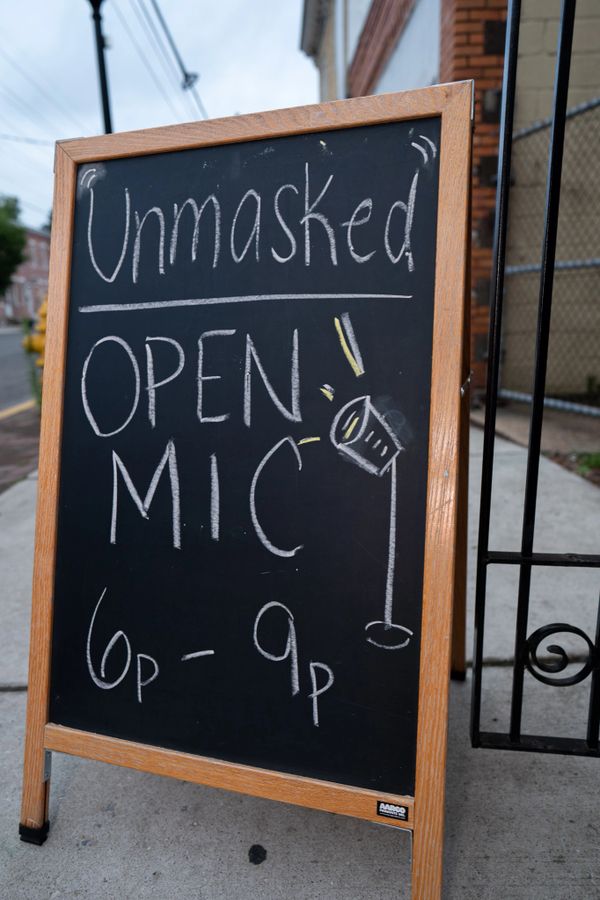 Unmasked
OPEN
MIC
6p - 9p
AARCO